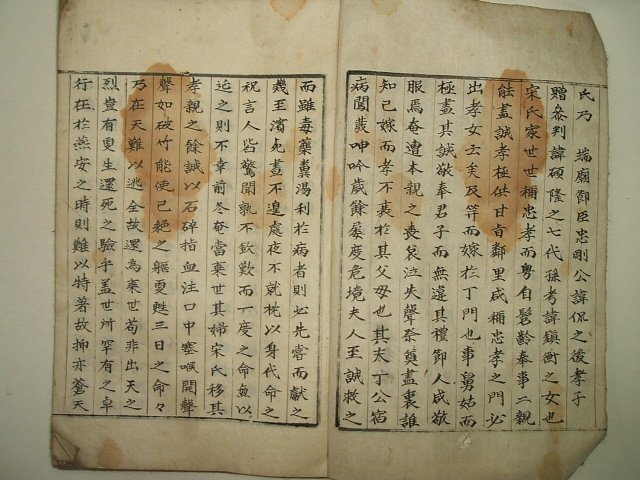 氏乃 端廟節臣忠剛公諱侃之後孝子
贈叅判諱碩隆之七代孫考諱鎭衡之女也
宋氏家世世稱忠孝而粤自髫齡奉事二親
能盡誠孝極供甘旨鄰里咸稱忠孝之門必
出孝女云矣及笄而嫁於丁門也事舅姑而
極盡其誠敬奉君子而無違其禮節人咸敬
服焉奄遭本親之喪哀泣失聲祭奠盡哀誰
知已嫁而孝不衰於其父母也其夫丁公宿
病闖發呻吟歲餘屢度危境夫人至誠救之
而雖毒藥糞湯利於病者則必先嘗而獻之
幾至濱死晝不遑處夜不就枕以身代命之
祝言人皆驚聞孰不欽歎而一度之命無以
延之則不幸前冬奄當棄世其婦宋氏移其
孝親之餘誠以石碑指血注口中塞喉開聲
聲如破竹能使已絶之軀更甦三日之命々
乃在天難以逃全故還為棄世苟非出天之
烈豈有更生還死之驗乎盖世所罕有之卓
行在於燕安之時則難以特著故抑亦蒼天